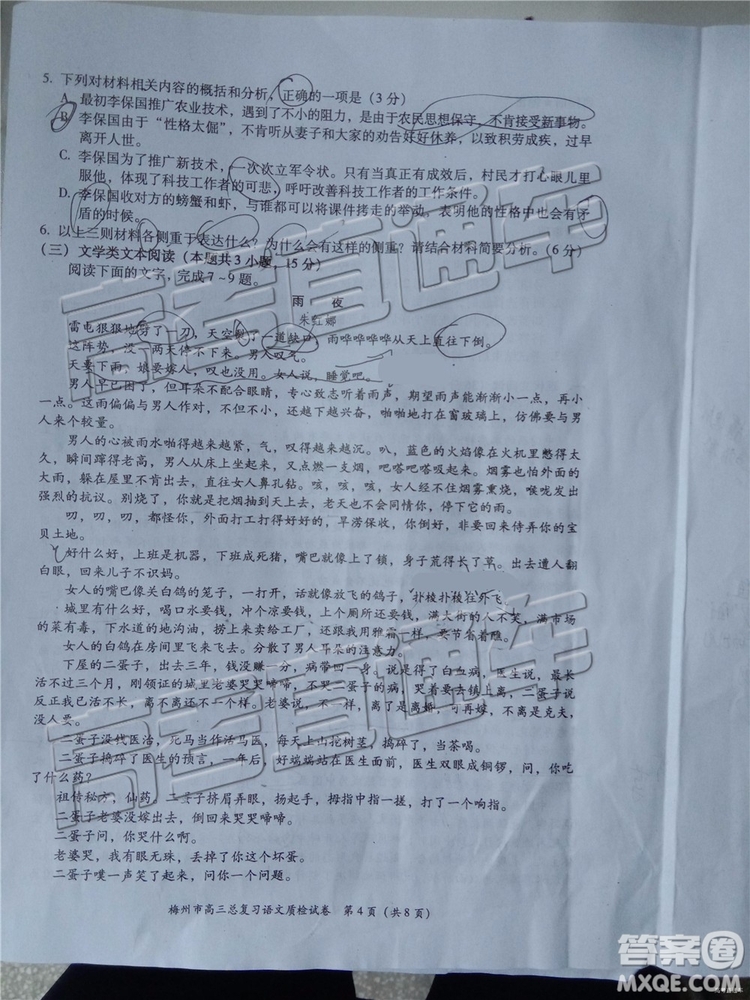 5. 下列对材料相关内容的概括和分析，正确的一项是（3 分）
A. 最初李保国推广农业技术，遇到了不小的阻力，是由于农民思想保守，不肯接受新事物。
B. 李保国由于“性格太倔”，不肯听从妻子和大家的劝告好好休养，以致积劳成疾，过早
离开人世。
C. 李保国为了推广新技术，一次次立军令状。只有当真正有成效后，村民才打心眼儿里
服他，体现了科技工作者的可悲，呼吁改善科技工作者的工作条件。
D. 李保国收对方的螃蟹和虾，与谁都可以将课件拷走的举动，表明他的性格中也会有矛
盾的时候。
6. 以上三则材料各侧重于表达什么？为什么会有这样的侧重？请结合材料简要分析。（6 分）
（三）文学类文本阅读（本题共 3 小题，15 分）
阅读下面的文字，完成 7～9 题。
雨 夜
朱红娜
雷电狠狠地劈了一刀，天空裂了一道缺口，雨哗哗哗哗从天上直往下倒。
这阵势，没一两天停不下来。男人叹气。
天要下雨，娘要嫁人，叹也没用。女人说，睡觉吧。
男人早已困了，但耳朵不配合眼睛，专心致志听着雨声，期望雨声能渐渐小一点，再小
一点。这雨偏偏与男人作对，不但不小，还越下越兴奋，啪啪地打在窗玻璃上，仿佛要与男
人来个较量。
男人的心被雨水拍得越来越紧，气，叹得越来越沉。叭，蓝色的火焰像在火机里憋得太
久，瞬间蹿得老高，男人从床上坐起来，又点燃一支烟，吧嗒吧嗒抽着。烟雾也怕外面的
大雨，躲在屋里四处流窜，直往女人鼻孔钻。咳，咳，咳，女人经不住烟雾熏烧，喉咙发出
强烈的抗议。别烧了，你就是把烟抽到天上去，老天也不会可怜你，停下它的雨。
叨，叨，叨，都怪你，外面打工打得好好的，旱涝保收，你倒好，非要回来侍弄你的宝
贝土地。
好什么好，上班是机器，下班成死猪，嘴巴就像上了锁，身子荒得长了草。出去遭人翻
白眼，回来儿子不识妈。
女人的嘴巴像关白鸽的笼子，一打开，话就像放飞的鸽子，扑棱扑棱往外飞。
城里有什么好，喝口水要花钱，冲个凉要花钱，上个厕所还要花钱，满大街的人不笑，满市场
的菜有毒，下水道的地沟油，捞上来卖给工厂，还跟我用雅霜一样，要节省着哩。
女人的白鸽在房间里飞来飞去。分散了男人耳朵的注意力。
下屋的二蛋子，出去三年，钱没赚一分，病带回一身。说是得了白血病，医生说，最长
活不过三个月，刚领证的城里老婆哭哭啼啼，不知道要不要去镇上离婚，二蛋子说，
反正我已活不长，离不离还不一个样。老婆说，不一样，离了是离婚，可再嫁，不离是克夫，
没人要。
二蛋子没钱医治，死马当作活马医，每天上山挖树茎，捣碎了，当茶喝。
二蛋子捣碎了医生的预言，一年后，好端端站在医生面前，医生双眼成铜锣，问，你吃
了什么药？
祖传秘方，仙药。二蛋子挤眉弄眼，扬起手，拇指中指一搓，打了一个响指。
二蛋子的老婆没嫁出去，倒回来哭哭啼啼。
二蛋子问，你哭什么啊。
老婆哭，我有眼无珠，丢掉了你这个坏蛋。
二蛋子噗一声笑了起来，月亮一样的脸
梅州市高三总复习语文质检试卷 第 4 页（共 8 页）
高考直通车
高考直通车
答案圈
MXQE.COM